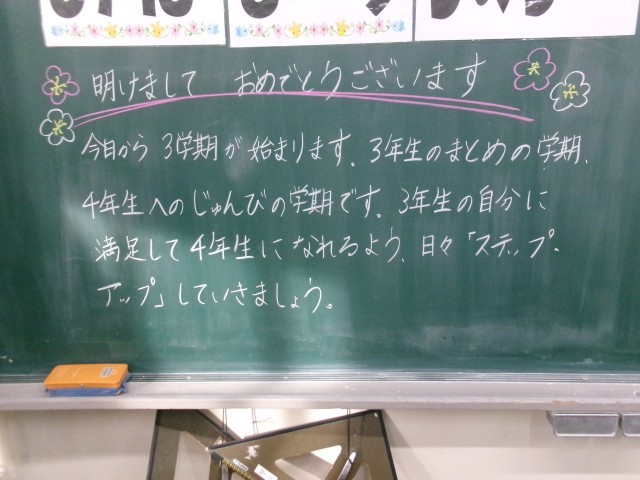 明けまして おめでとうございます
今日から 3学期が始まります。3年生のまとめの学期、
4年生へのじゅんびの学期です。3年生の自分に
満足して4年生になれるよう、日々「ステップ・
アップ」していきましょう。